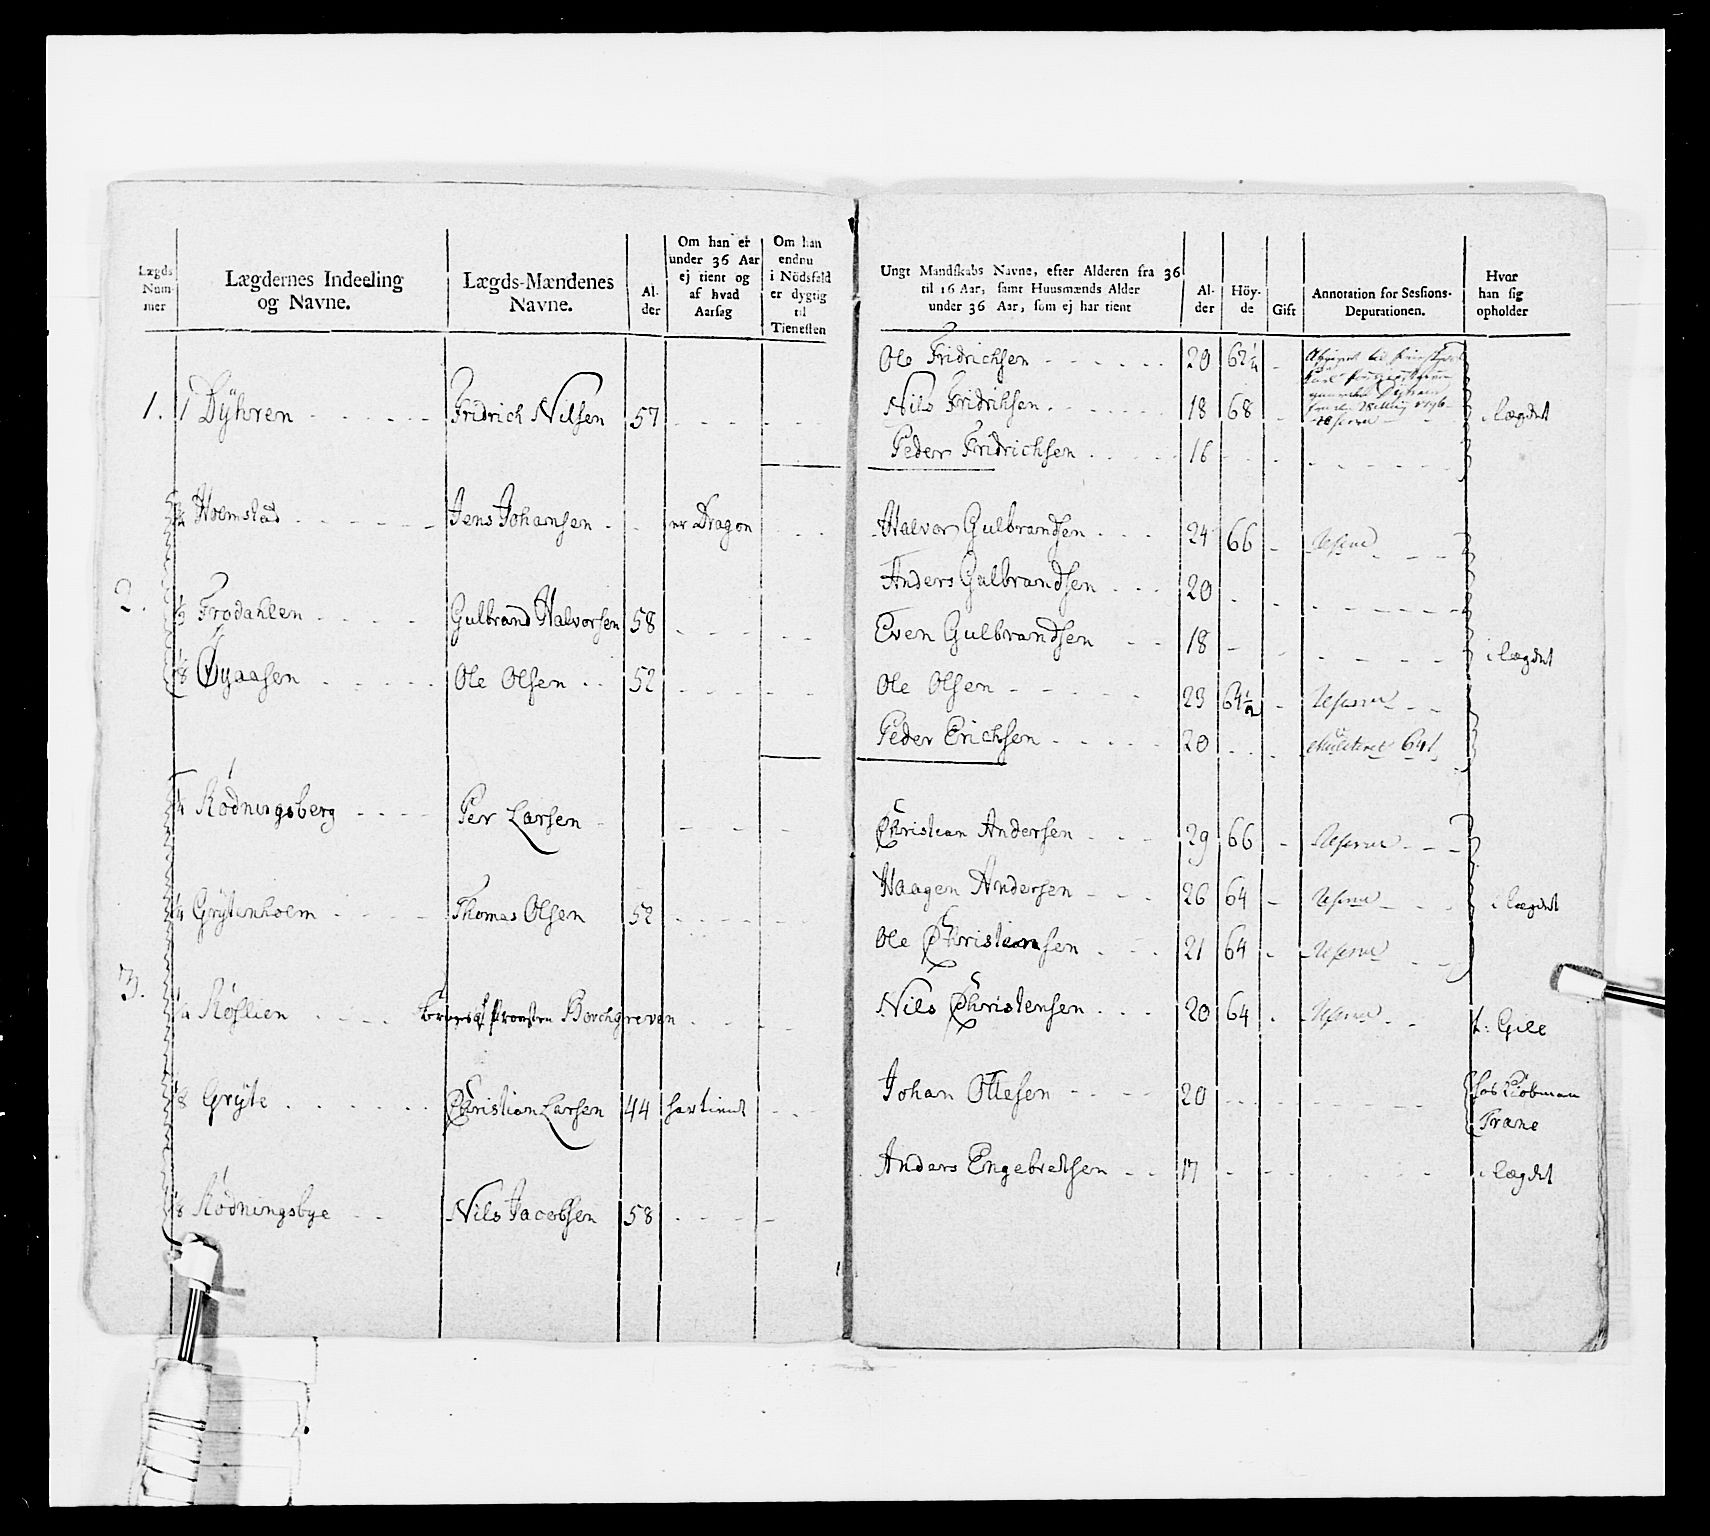 Lægds Num- mer
Lægdernes Indeeling og Navne.
Lægds-Mændenes Navne.
Al- der
Om han er under 36 Aar ej tient og af hvad Aarsag
Om han endnu i Nödsfald er dygtig til Tienesten
1. 1 Dÿhren Fridrich Nilsen 57
½ Holmstad Jens Johansen er Dragon
2. Frodahlen Gulbrand Halvorsen 58
⅛ Øyaasen Ole Olsen 52
¼ Rödningsberg Per Larsen
¼ Grÿtenholm Thomas Olsen 52
3. Röslien Borchgreven
⅛ Grÿte Christian Larsen 44 har tient
⅛ Rödningsbye Nils Jacobsen 58
Ungt Mandskabs Navne, efter Alderen fra 36 til 16 Aar, samt Huusmænds Alder under 36 Aar, som ej har tient
Al- der
Höy- de
Gift
Annotation for Sessions- Deputationen.
Hvor han sig opholder
Ole Fridrichsen 20 62¼
Nils Fridrihsen 18 68 i lægdet
Peder Fridrichsen 16
Halvor Gulbrandsen 24 66 Reserve
Anders Gulbrandsen 20
Even Gulbrandsen 18 i lægdet
Ole Olsen 23 64½ Reserve
Peder Erichsen 20
Christian Andersen 29 66 Reserve
Haagen Andersen 26 64 Reserve i lægdet
Ole Christiansen 21 64 Reserve
Nils Christensen 20 64 Reserve
Johan Ottesen 20 hos Kiöbman
Trane
Anders Engebretsen 17 i lægdet